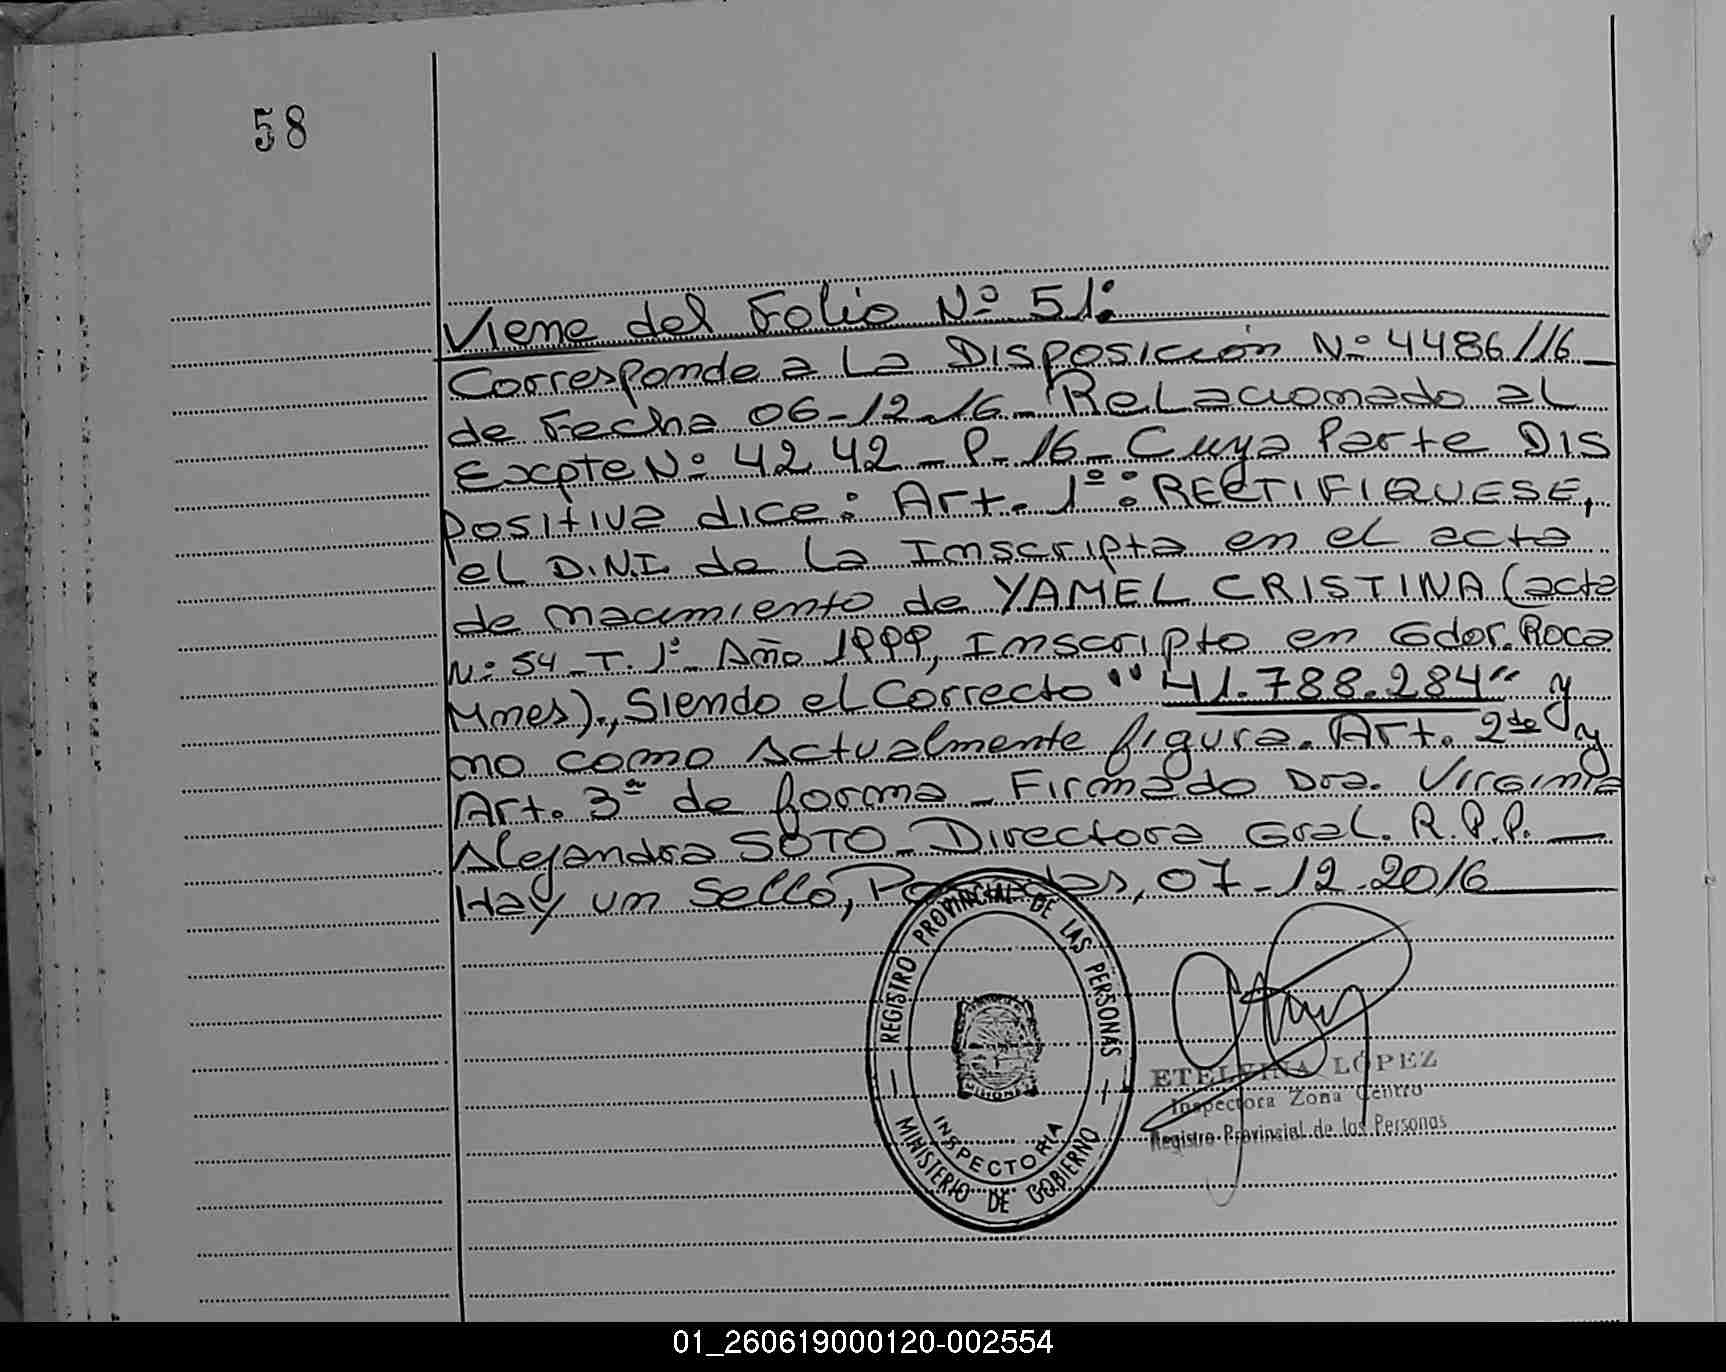 58
Viene del Folio Nº 51:
Corresponde a La Disposición Nº 4486/16
de Fecha 06-12-16- Relacionado al
Excpte Nº 4242-P-16- Cuya Parte Dis
positiva dice: Art. 1º: RECTIFIQUESE,
el D.N.I. de La Inscripta en el acta
de nacimiento de YAMEL CRISTINA (acta
Nº 54-T. 1º- Año 1999, Inscripto en Gdor. Roca
Mnes)., Siendo el Correcto "41.788.284" y
no como Actualmente figura. Art. 2do y
Art. 3º de forma - Firmado Dra. Virginia
Alejandra SOTO - Directora Gral. R.P.P.
Hay un Sello, Posadas, 07-12-2016
REGISTRO PROVINCIAL DE LAS PERSONAS
MISIONES
INSPECTORIA
MINISTERIO DE GOBIERNO
ETELVINA LÓPEZ
Inspectora Zona Centro
Registro Provincial de las Personas
01_260619000120-002554